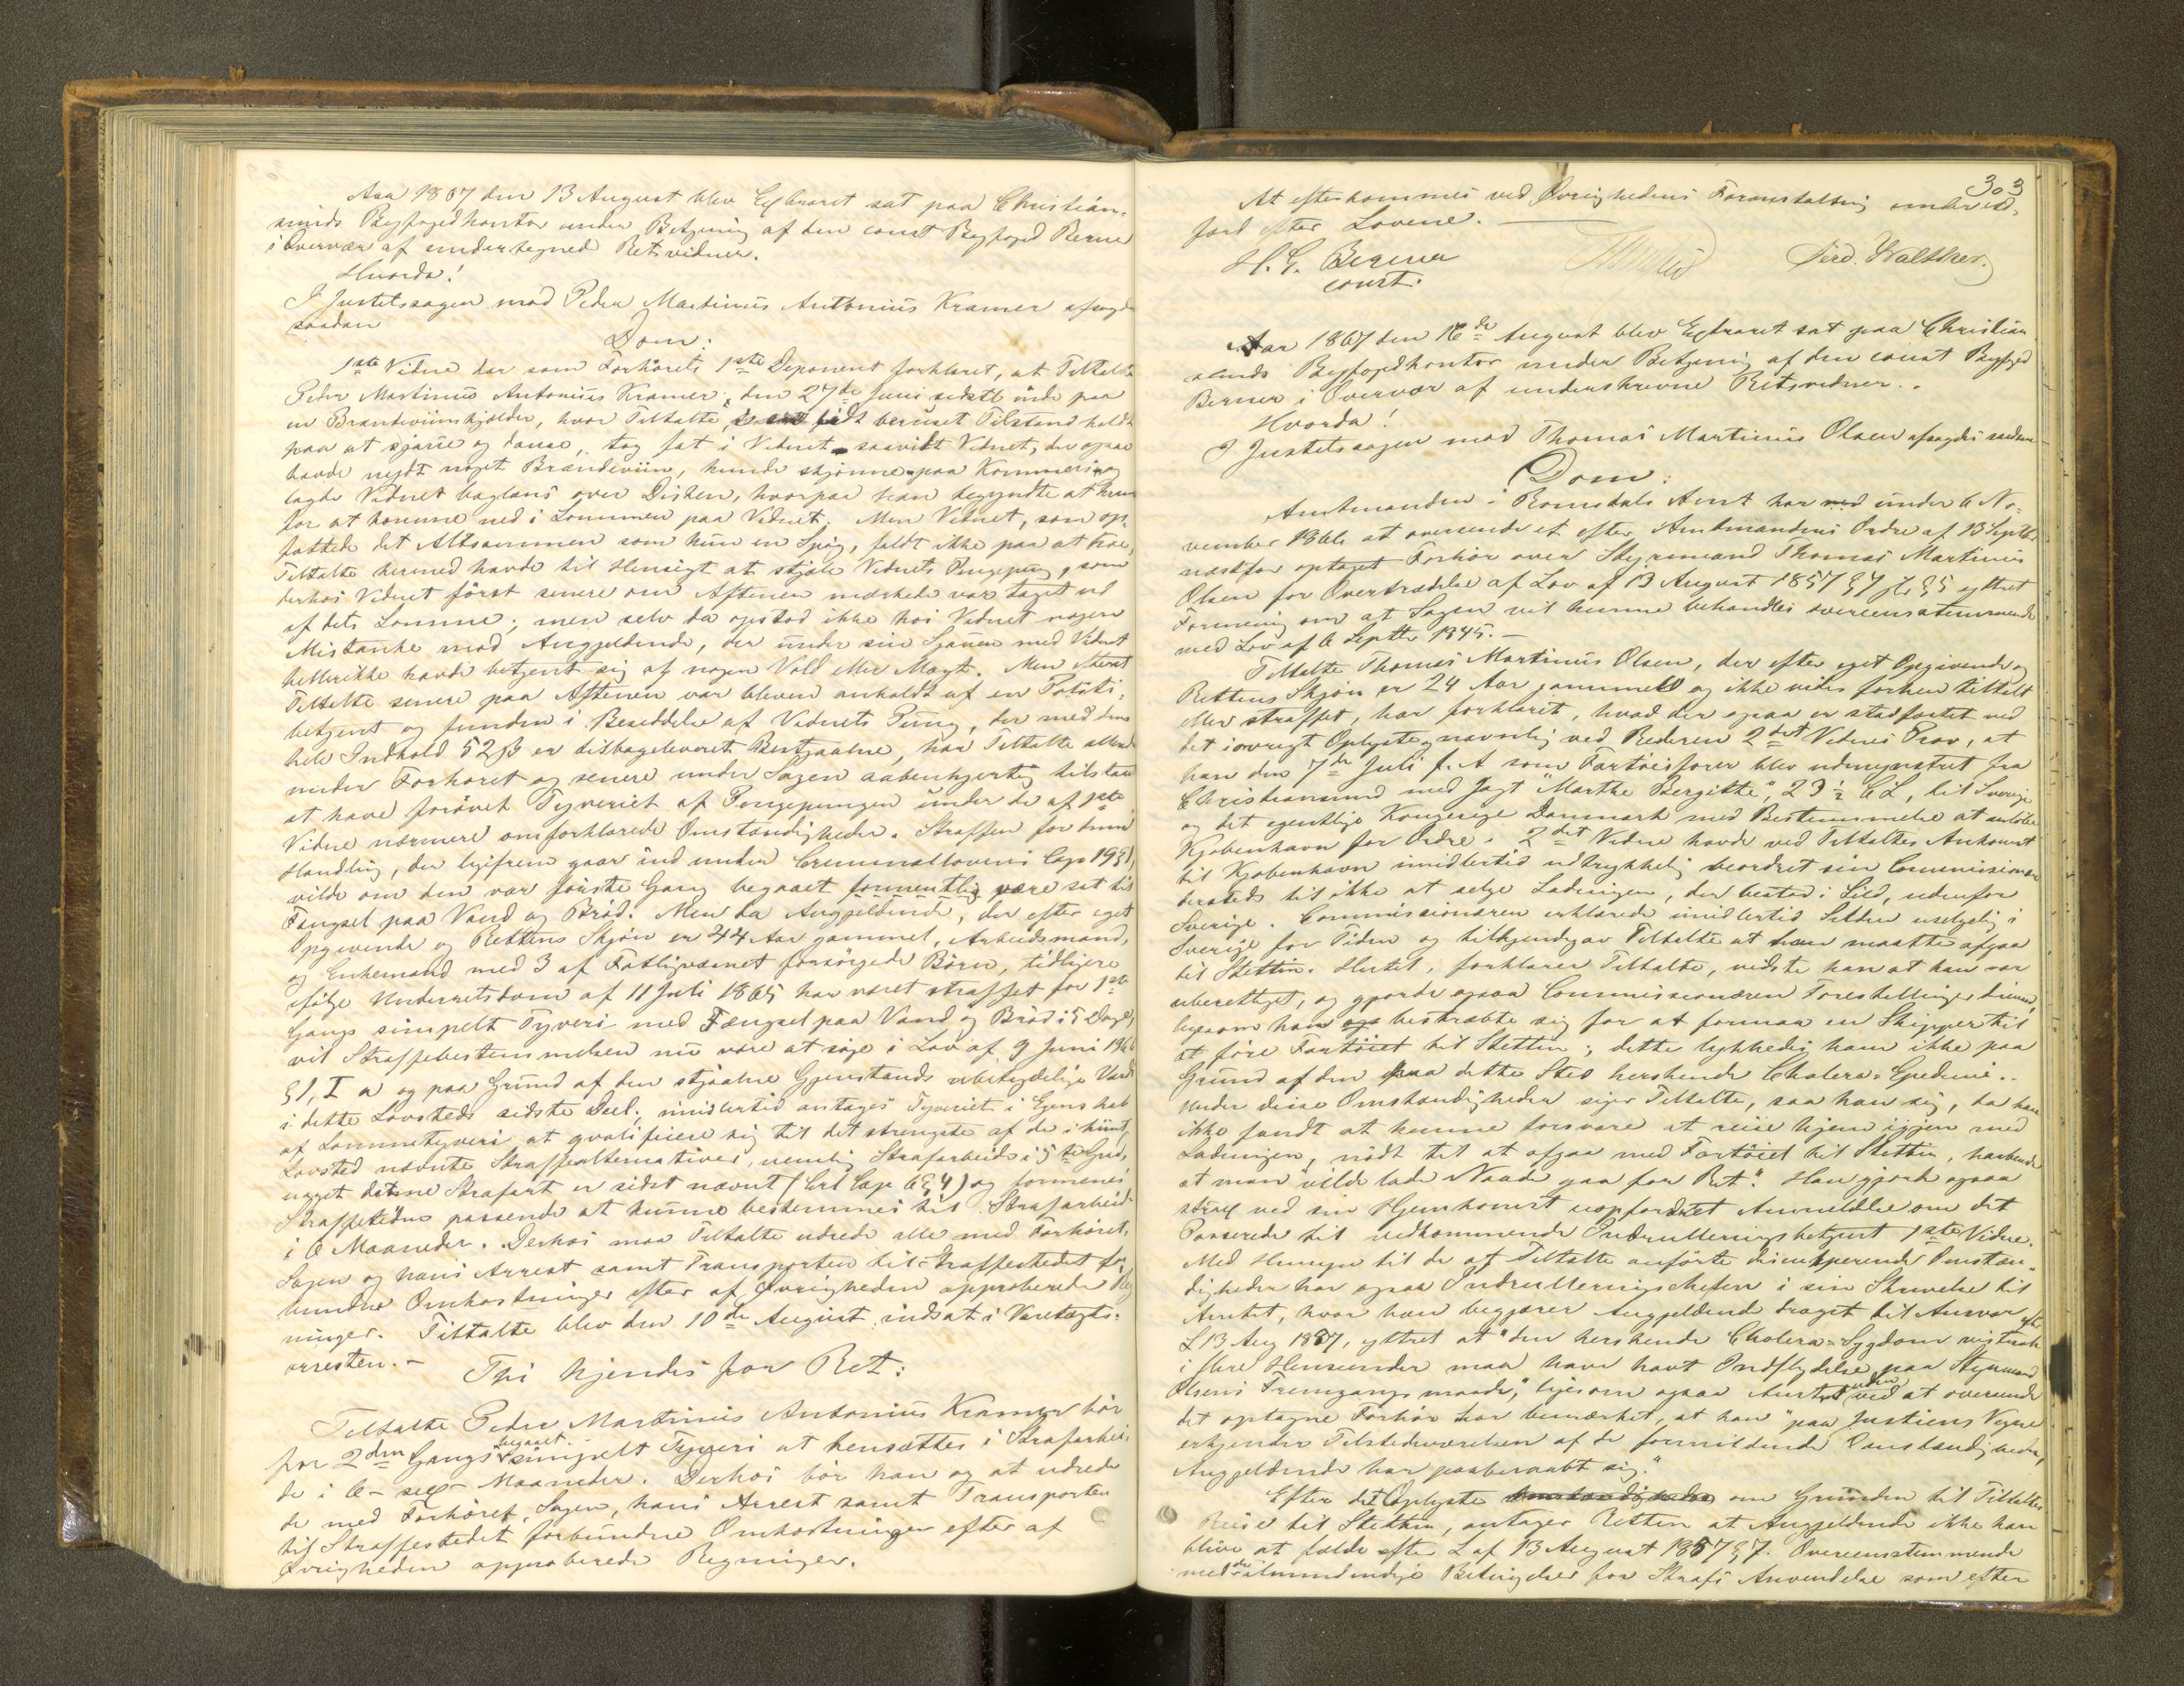 Aar 1867 den 13 August blev Extraret sat paa Christian-
sunds Byfogedkontor under Betjening af den const Byfoged Berner
i Overvær af undertegnede Retsvidner.
Hvorda!
I Justitssagen mod Peder Martinus Antonius Kramer afsagdes
saadan
Dom:
1ste Vidne har som Forhørets 1ste Deponent forklaret, at Tiltalte
Peder Martinus Antonius Kramer, den 27de Juni sidstl inde paa
en Brændeviinskjælder, hvor Tiltalte, i beruset Tilstand holdt
paa at sjaue og danse, tog fat i Vidnet saavidt Vidnet, der ogsaa
havde nydt noget Brændeviin, kunde skjønne paa Kommers og
lagde Vidnet baglæns over Disken, hvorpaa han begyndte at
for at komme ned i Lommen paa Vidnet. Men Vidnet, som op-
fattede det Altsammen som kun en Spøg, faldt ikke paa at troe,
Tiltalte hermed havde til Hensigt at stjæle Vidnets Pengepung, som
derhos Vidnet først senere om Aftenen mærkede var taget ud
af dets Lomme; men selv da opstod ikke hos Vidnet nogen
Mistanke mod Angjeldende, der under sin Sjauen med Vidnet
hellerikke havde betjent sig af nogen Vold eller Magt. Men
Tiltalte senere paa Aftenen var bleven anholdt af en Politi-
betjent og funden i Besiddelse af Vidnets Pung, der med dens
hele Indhold 52 ß er tilbageleveret Bestjaalne, har Tiltalte
under Forhøret og senere under Sagen aabenhjertig tilstaaet
at have forøvet Tyveriet af Pengepungen under de af 1ste
Vidne nærmere omforklarede Omstændigheder. Straffen for denne
Handling, der ligefrem gaar ind under Criminallovens Cap 19 § 1,
vilde om den var første Gang begaaet formentlig være sat til
Fængsel paa Vand og Brød. Men da Angjeldende, der efter eget
Opgivende og Rettens Skjøn er 44 Aar gammel, Arbeidsmand,
og Enkemand med 3 af Fattigvæsnet forsørgede Børn, tidligere
ifølge Underretsdom af 11 Juli 1865 har været straffet for 1ste
Gangs simpelt Tyveri med Fængsel paa Vand og Brød i 5 Dage,
vil Straffebestemmelsen nu være at søge i Lov af 9 Juni 1866
§ 1, I a og paa Grund af den stjaalne Gjenstands ubetydelige Værdi
i dette Lovsteds sidste Deel. imidlertid antages Tyveriet i Egenskab
af Lommetyveri at qvalificere sig til det strengeste af de i
Lovsted nævnte Straffealternativer, nemlig Strafarbeide i 5te Grad,
uagtet denne Strafart er sidst nævnt (Crl Cap 6 § 4) og formenes
Straffetiden passende at kunne bestemmes til Strafarbeide
i 6 Maaneder. Derhos maa Tiltalte udrede alle med Forhøret,
Sagen og hans Arrest samt Transporten til Straffestedet for-
bundne Omkostninger efter af Øvrigheden approberede Reg-
ninger. Tiltalte blev den 10de August indsat i Varetægts-
arresten. –
Thi kjendes for Ret:
Tiltalte Peder Martinus Antonius Kramer bør
for 2den Gang begaaet simpelt Tyveri at hensættes i Strafarbei-
de i 6 – sex – Maaneder. Derhos bør han og at udrede
de med Forhøret, Sagen, hans Arrest samt Transporten
til Straffestedet forbundne Omkostninger efter af
Øvrigheden approberede Regninger.
303
At efterkommes ved Øvrighedens Foranstaltning under Ad-
færd efter Lovene.
H. G. Berner
const.
Ferd. Walther.
Aar 1867 den 16de August blev Extraret sat paa Christian
sunds Byfogedkontor under Betjening af den const Byfoged
Berner i Overvær af underskrevne Retsvidner.
Hvorda!
I Justitssagen mod Thomas Martinus Olsen afsagdes saadan
Dom:
Amtmanden i Romsdals Amt har under 6 No-
vember 1866 at oversende et efter Amtmandens Ordre af 13 Septbr
næstfør optaget Forhør over Styrmand Thomas Martinus
Olsen for Overtrædelse af Lov af 13 August 1857 § 7 jfr § 5 yttret
Formening om at Sagen vil kunne behandles overeensstemmende
med Lov af 6 Septbr 1845. –
Tiltalte Thomas Martinus Olsen, der efter eget Opgivende og
Rettens Skjøn er 24 Aar gammel og ikke vides forhen tiltalt
eller straffet, har forklaret, hvad der ogsaa er stadfæstet ved
det iøvrigt Oplyste, navnlig ved Rederen 2det Vidnes Prov, at
han den 7de Juli f. A som Fartøisfører blev udmønstret fra
Christiansund med Jagt "Marthe Bergitte", 29 ½ CL, til Sverige
og det egentlige Kongerige Danmark med Bestemmelse at anløbe
Kjøbenhavn for Ordre. 2det Vidne havde ved Tiltaltes Ankomst
til Kjøbenhavn imidlertid udtrykkelig beordret sin Commissionær
dersteds til ikke at selge Ladningen, der bestod i Sild, udenfor
Sverige. Commissionæren erklærede imidlertid Silden uselgelig i
Sverige for Tiden og tilkjendegav Tiltalte at han maatte afgaa
til Stettin. Hertil, forklarer Tiltalte, vidste han at han var
uberettiget, og gjorde ogsaa Commissionæren Forestillinger derom,
ligesom han bestræbte sig for at formaa en Skipper til
at føre Fartøiet til Stettin; dette lykkedes ham ikke paa
Grund af den paa dette Sted herskende Cholera-Epedemi.
Under disse Omstændigheder siger Tiltalte, saa han sig, da han
ikke fandt at kunne forsvare at reise hjem igjen med
Ladningen, nødt til at afgaa med Fartøiet til Stettin, haabende
at man "vilde lade Naade gaa for Ret". Han gjorde ogsaa
strax ved sin Hjemkomst uopfordret Anmeldelse om det
Passerede til vedkommende Indrulleringsbetjent 1ste Vidne.
Med Hensyn til de af Tiltalte anførte disculperende Omstæn-
digheder har ogsaa Indrulleringschefen i sin Skrivelse til
Amtet, hvor han begjærer Angjeldende draget til Ansvar efter
L 13 Aug 1857, yttret at "den herskende Cholera-Sygdom vistnok
i flere Henseender maa have havt Indflydelse paa Styrmand
Olsens Fremgangsmaade", ligesom ogsaa Amtet ved at oversende
det optagne Forhør har bemærket, at han "paa Justiens Vegne
erkjender Tilstedeværelsen af de formildende Omstændigheder,
Angjeldende har paaberaabt sig."
Efter det Oplyste om Grunden til Tiltaltes
Reise til Stettin, antager Retten at Angjeldende ikke kan
blive at fælde efter L af 13 August 1857 § 7. Overeensstemmende
med de almindelige Betingelser for Strafs Anvendelse som efter